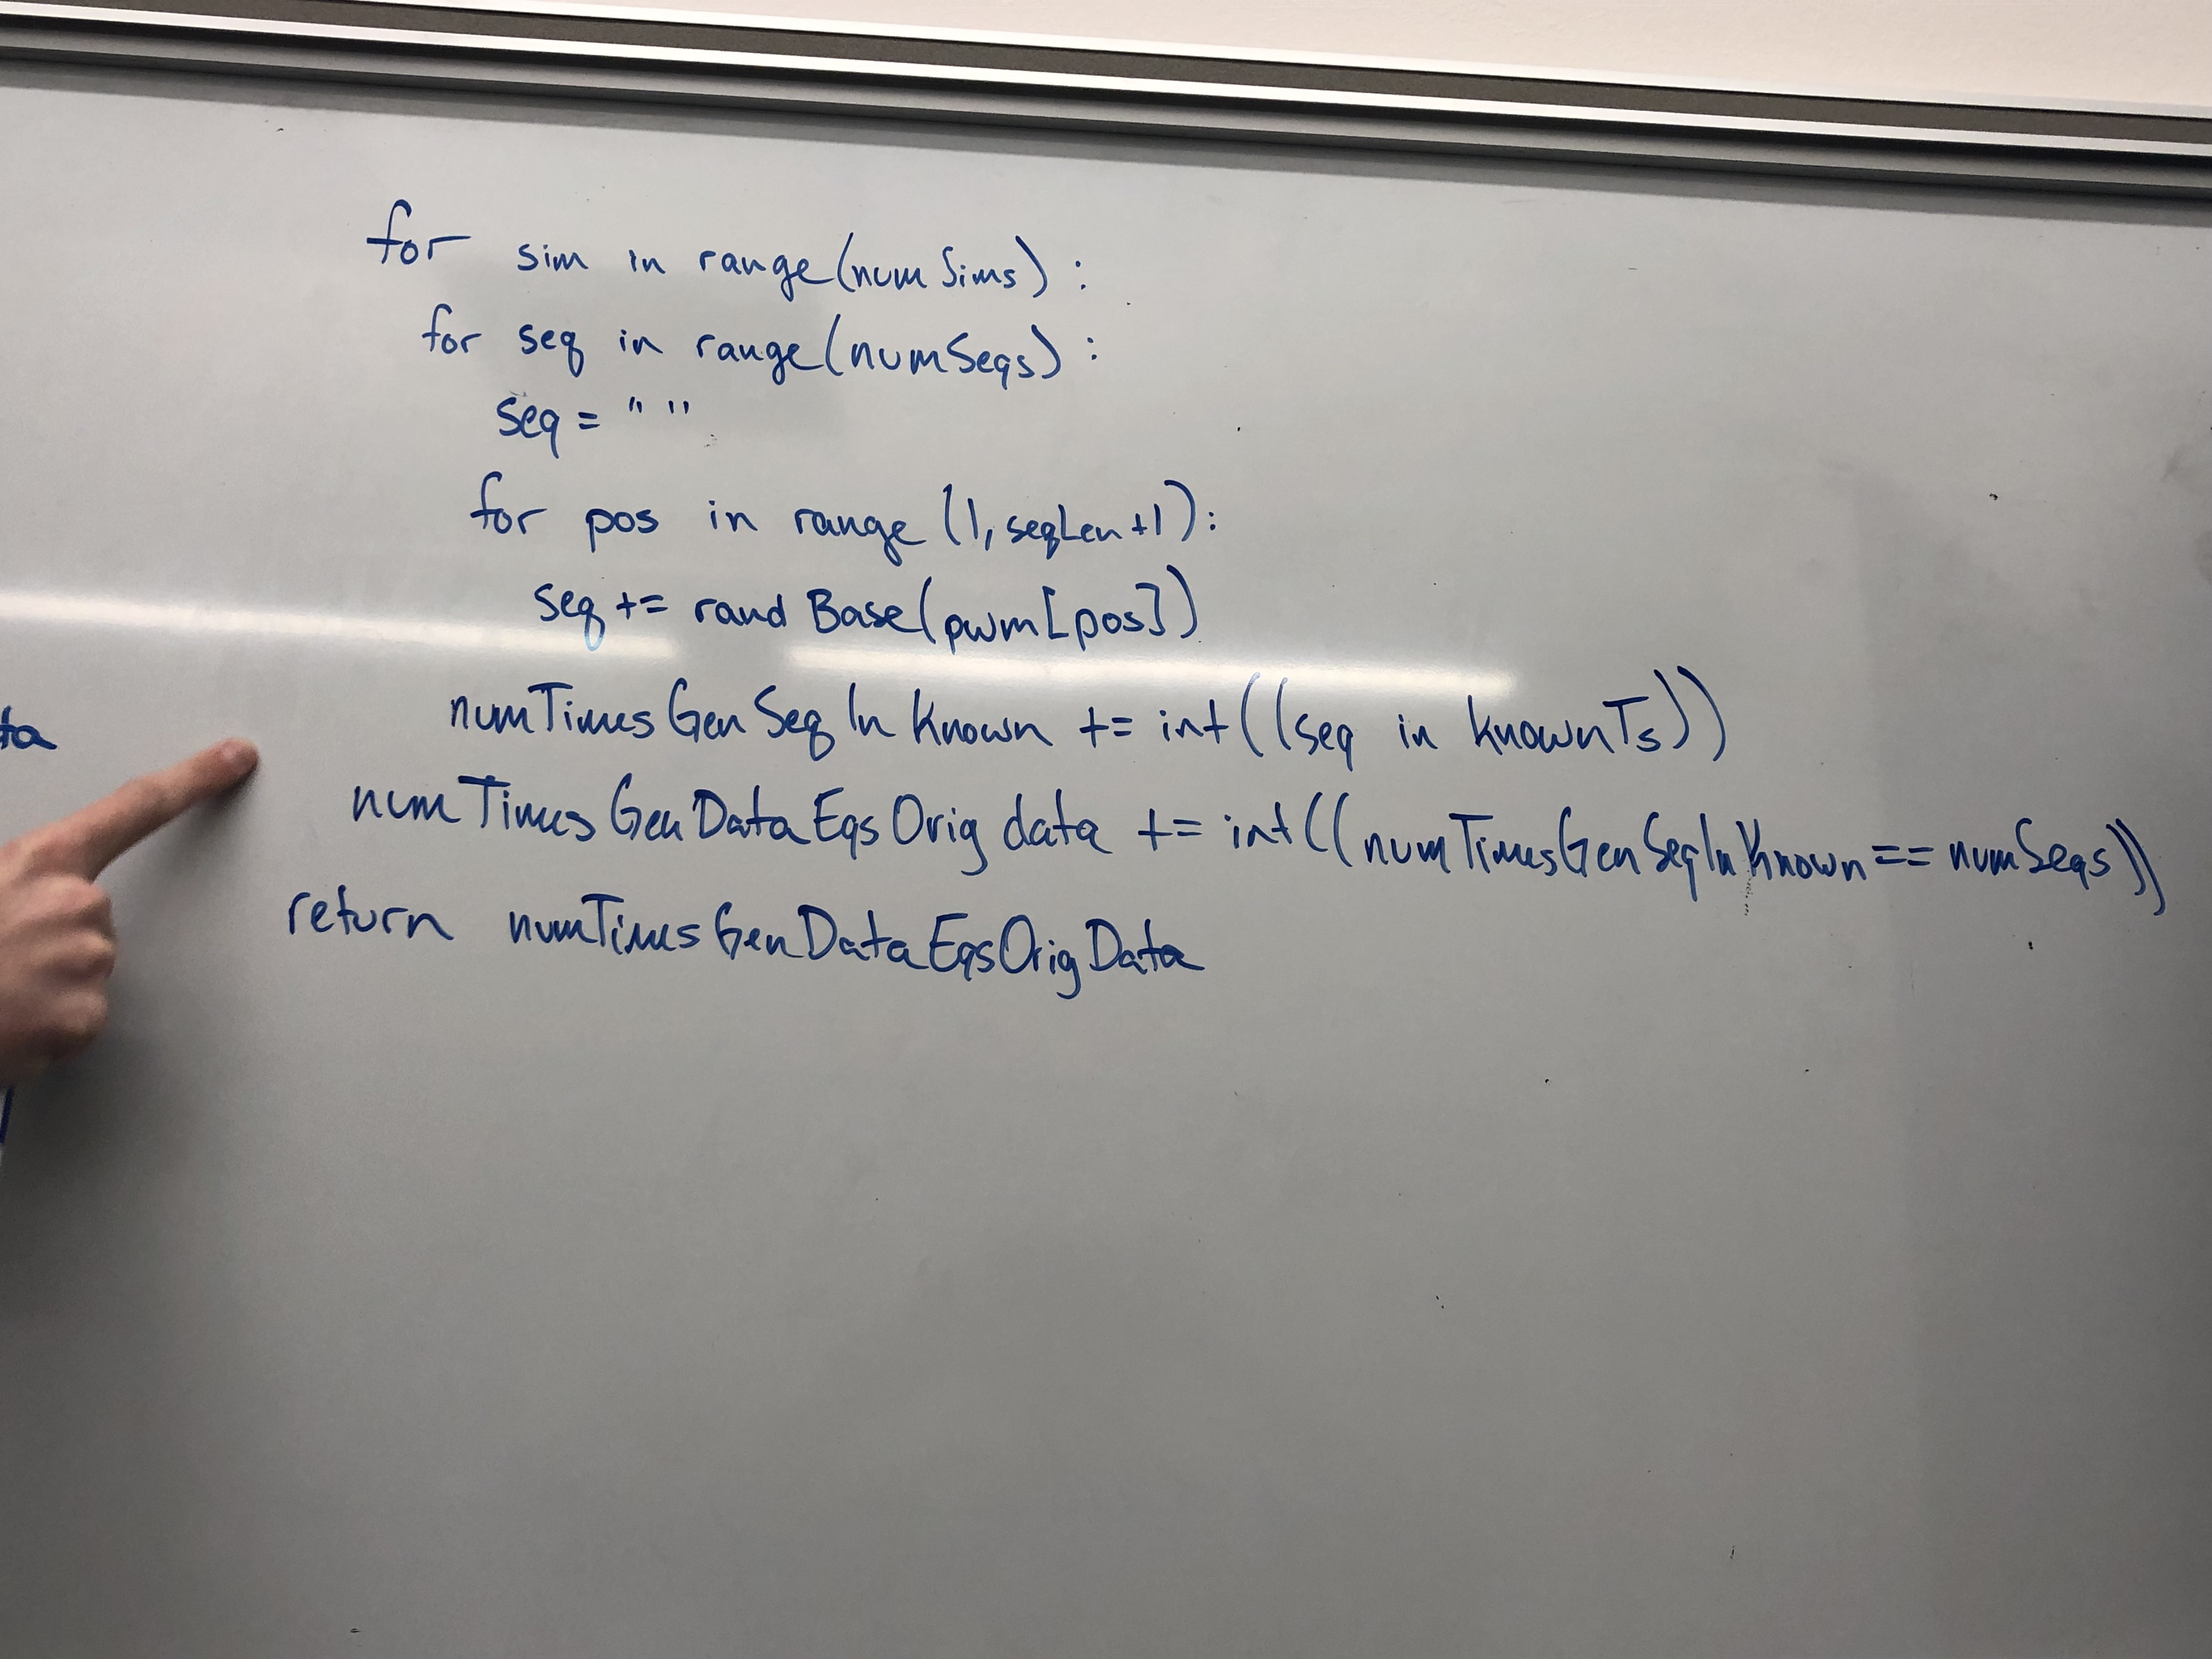 for sim in range(numSims):
for seq in range(numSeqs):
seq = " "
for pos in range (1, seqLen+1):
seq += randBase(pwm[pos])
numTimesGenSeqInKnown += int((seq in knownTs))
ta
numTimesGenDataEqsOrigdata += int((numTimesGenSeqInKnown == numSeqs))
return numTimesGenDataEqsOrigData